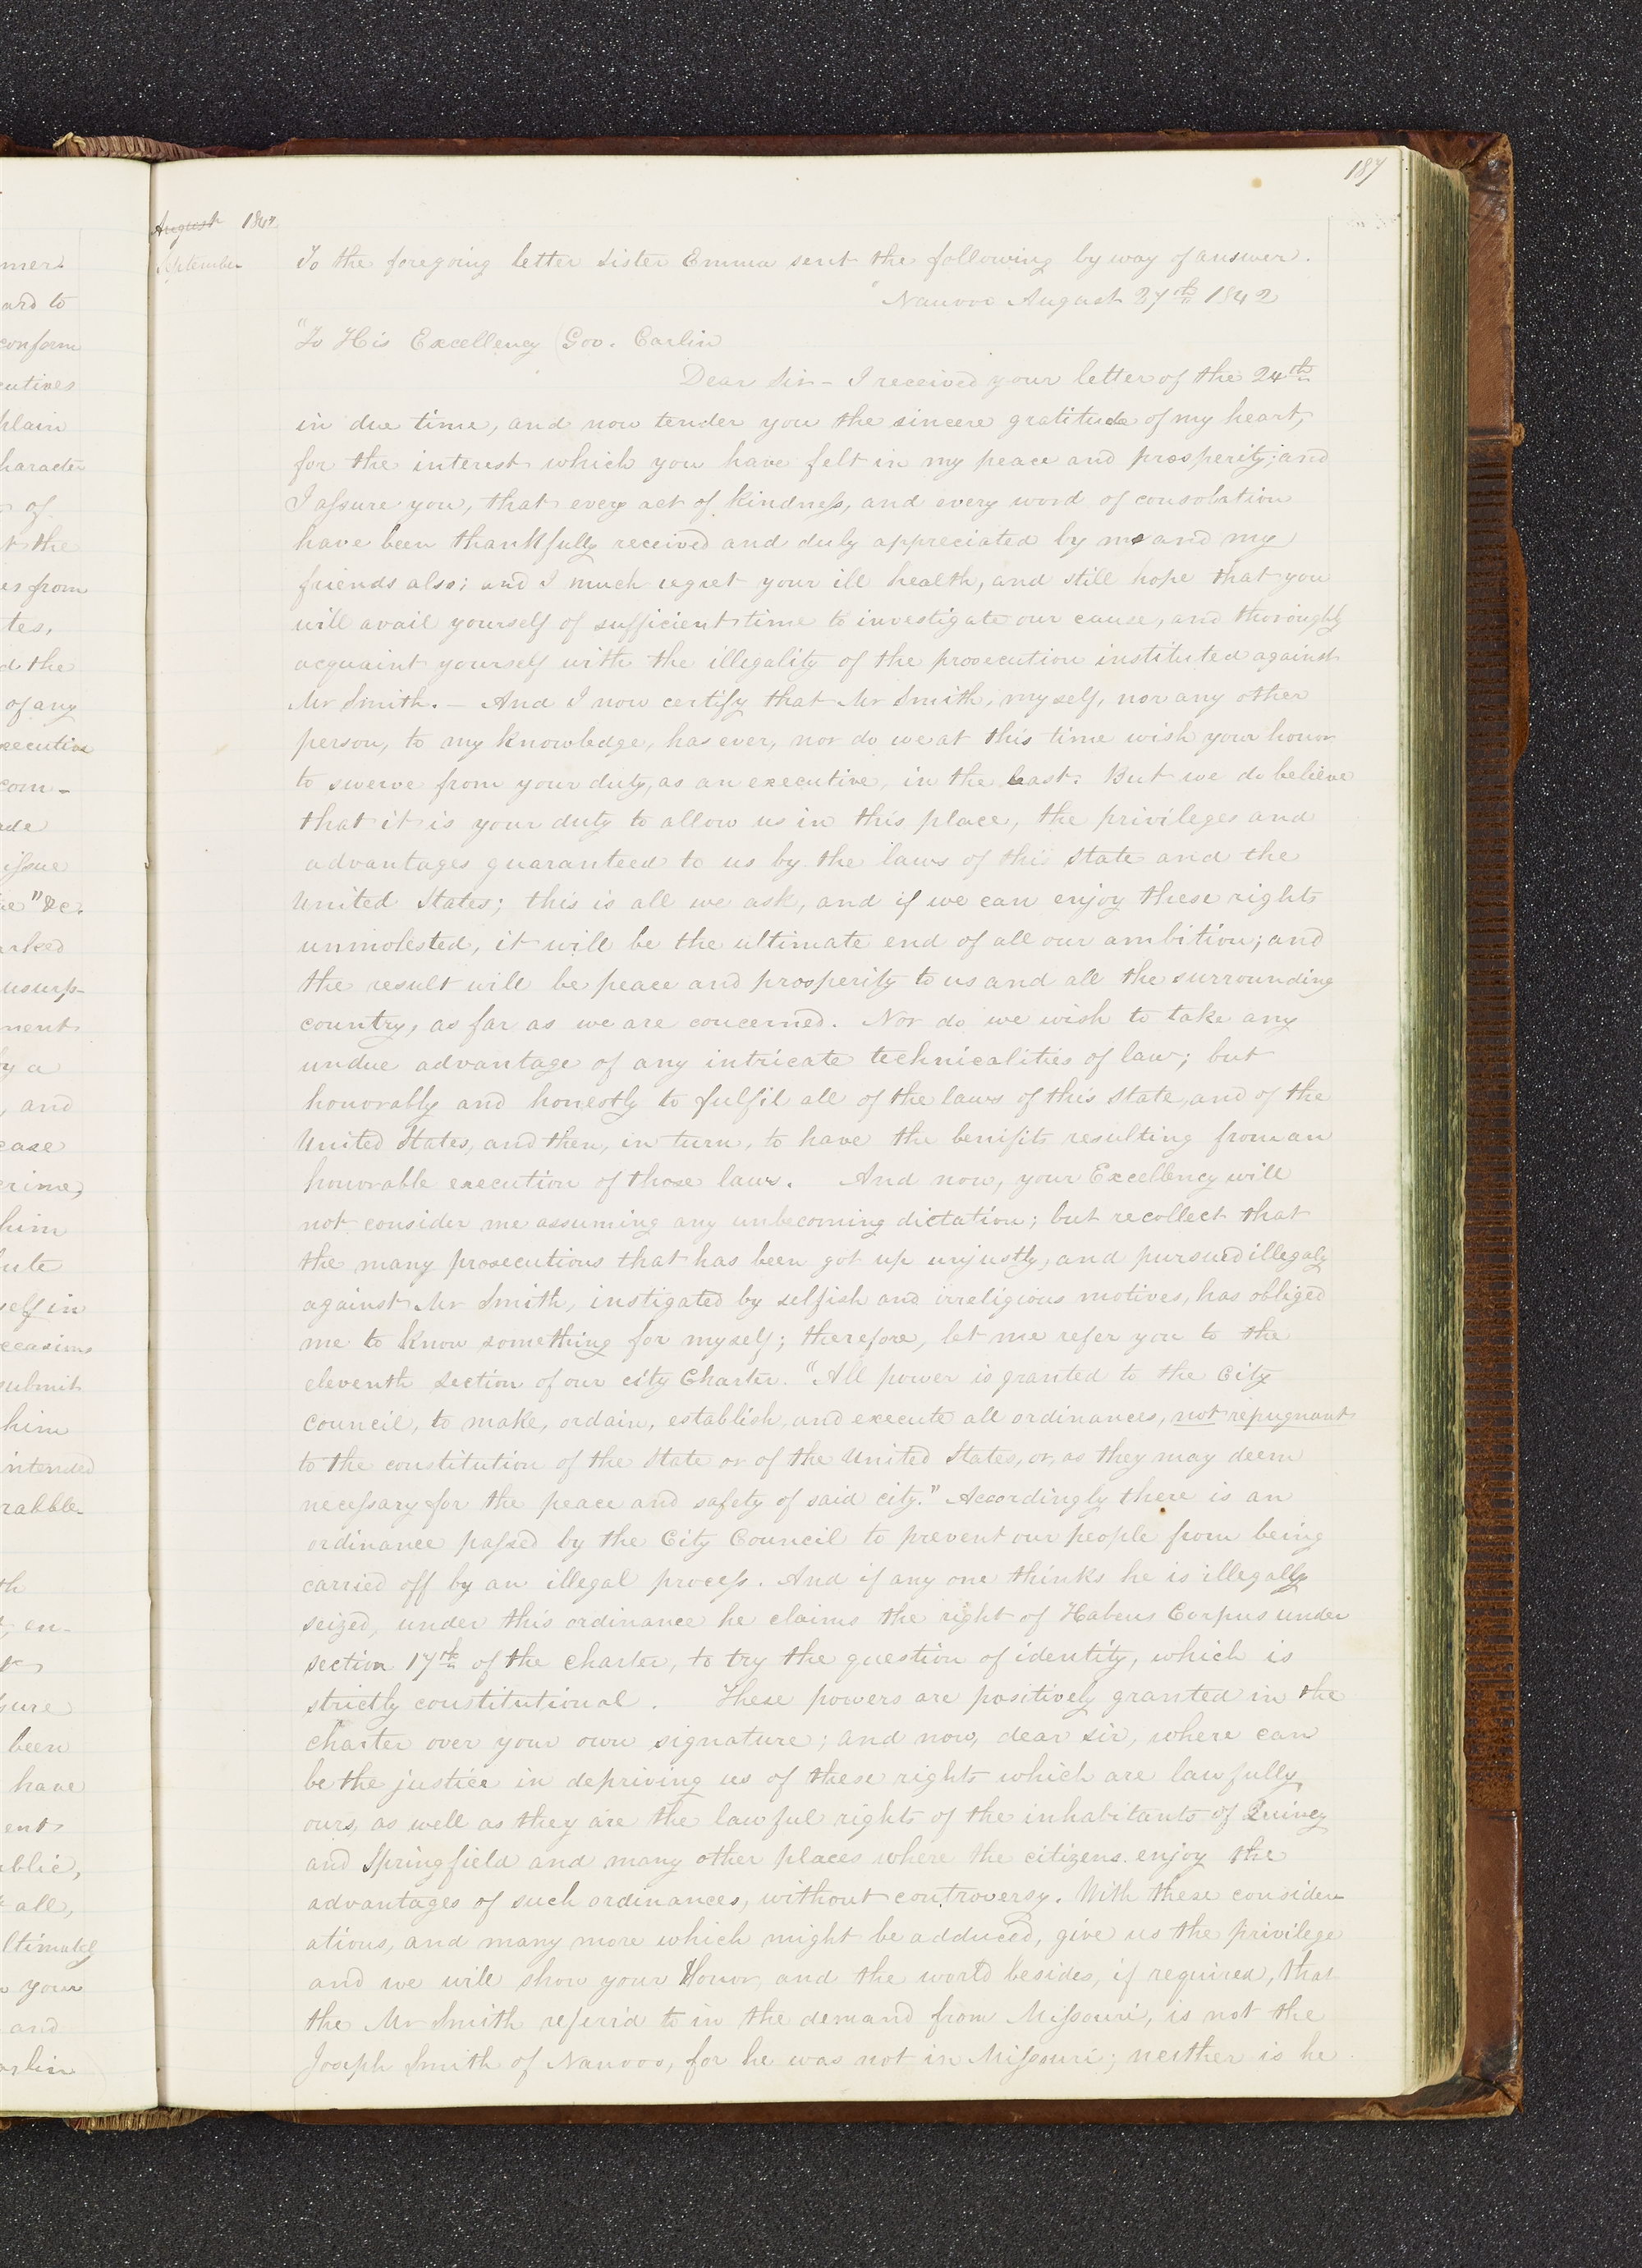 187
August 1842
September
To the foregoing letter sister Emma sent the following by way of answer.
"Nauvoo August 27th 1842
"To His Excellency Gov. Carlin
Dear Sir – I received your letter of the 24th
in due time, and now tender you the sincere gratitude of my heart,
for the interest which you have felt in my peace and prosperity; and
I assure you, that every act of kindness, and every word of consolation
have been thankfully received and duly appreciated by me and my
friends also; and I much regret your ill health, and still hope that you
will avail yourself of sufficient time to investigate our cause, and thoroughly
acquaint yourself with the illegality of the prosecution instituted against
Mr Smith. – And I now certify that Mr Smith, myself, nor any other
person, to my knowledge, has ever, nor do we at this time wish your honor
to swerve from your duty, as an executive, in the least. But we do believe
that it is your duty to allow us in this place, the privileges and
advantages guaranteed to us by the laws of this State and the
United States; this is all we ask, and if we can enjoy these rights
unmolested, it will be the ultimate end of all our ambition; and
the result will be peace and prosperity to us and all the surrounding
country, as far as we are concerned. Nor do we wish to take any
undue advantage of any intricate technicalities of law; but
honorably and honestly to fulfil all of the laws of this State, and of the
United States, and then, in turn, to have the benifits resulting from an
honorable execution of those laws. And now, your Excellency will
not consider me assuming any unbecoming dictation; but recollect that
the many prosecutions that has been got up unjustly, and pursued illegaly
against Mr Smith, instigated by selfish and irreligious motives, has obliged
me to know something for myself; therefore, let me refer you to the
eleventh section of our city Charter. "All power is granted to the City
Council, to make, ordain, establish, and execute all ordinances, not repugnant
to the constitution of the State or of the United States, or, as they may deem
necessary for the peace and safety of said city." Accordingly there is an
ordinance passed by the City Council to prevent our people from being
carried off by an illegal process. And if any one thinks he is illegally
seized, under this ordinance he claims the right of Habeus Corpus under
section 17th of the charter, to try the question of identity, which is
strictly constitutional. These powers are positively granted in the
charter over your own signature; and now, dear sir, where can
be the justice in depriving us of these rights which are lawfully
ours, as well as they are the lawful rights of the inhabitants of Quincy
and Springfield and many other places where the citizens enjoy the
advantages of such ordinances, without controversy. With these consider-
ations, and many more which might be adduced, give us the privilege
and we will show your Honor, and the world besides, if required, that
the Mr Smith referr'd to in the demand from Missouri, is not the
Joseph Smith of Nauvoo, for he was not in Missouri; neither is he